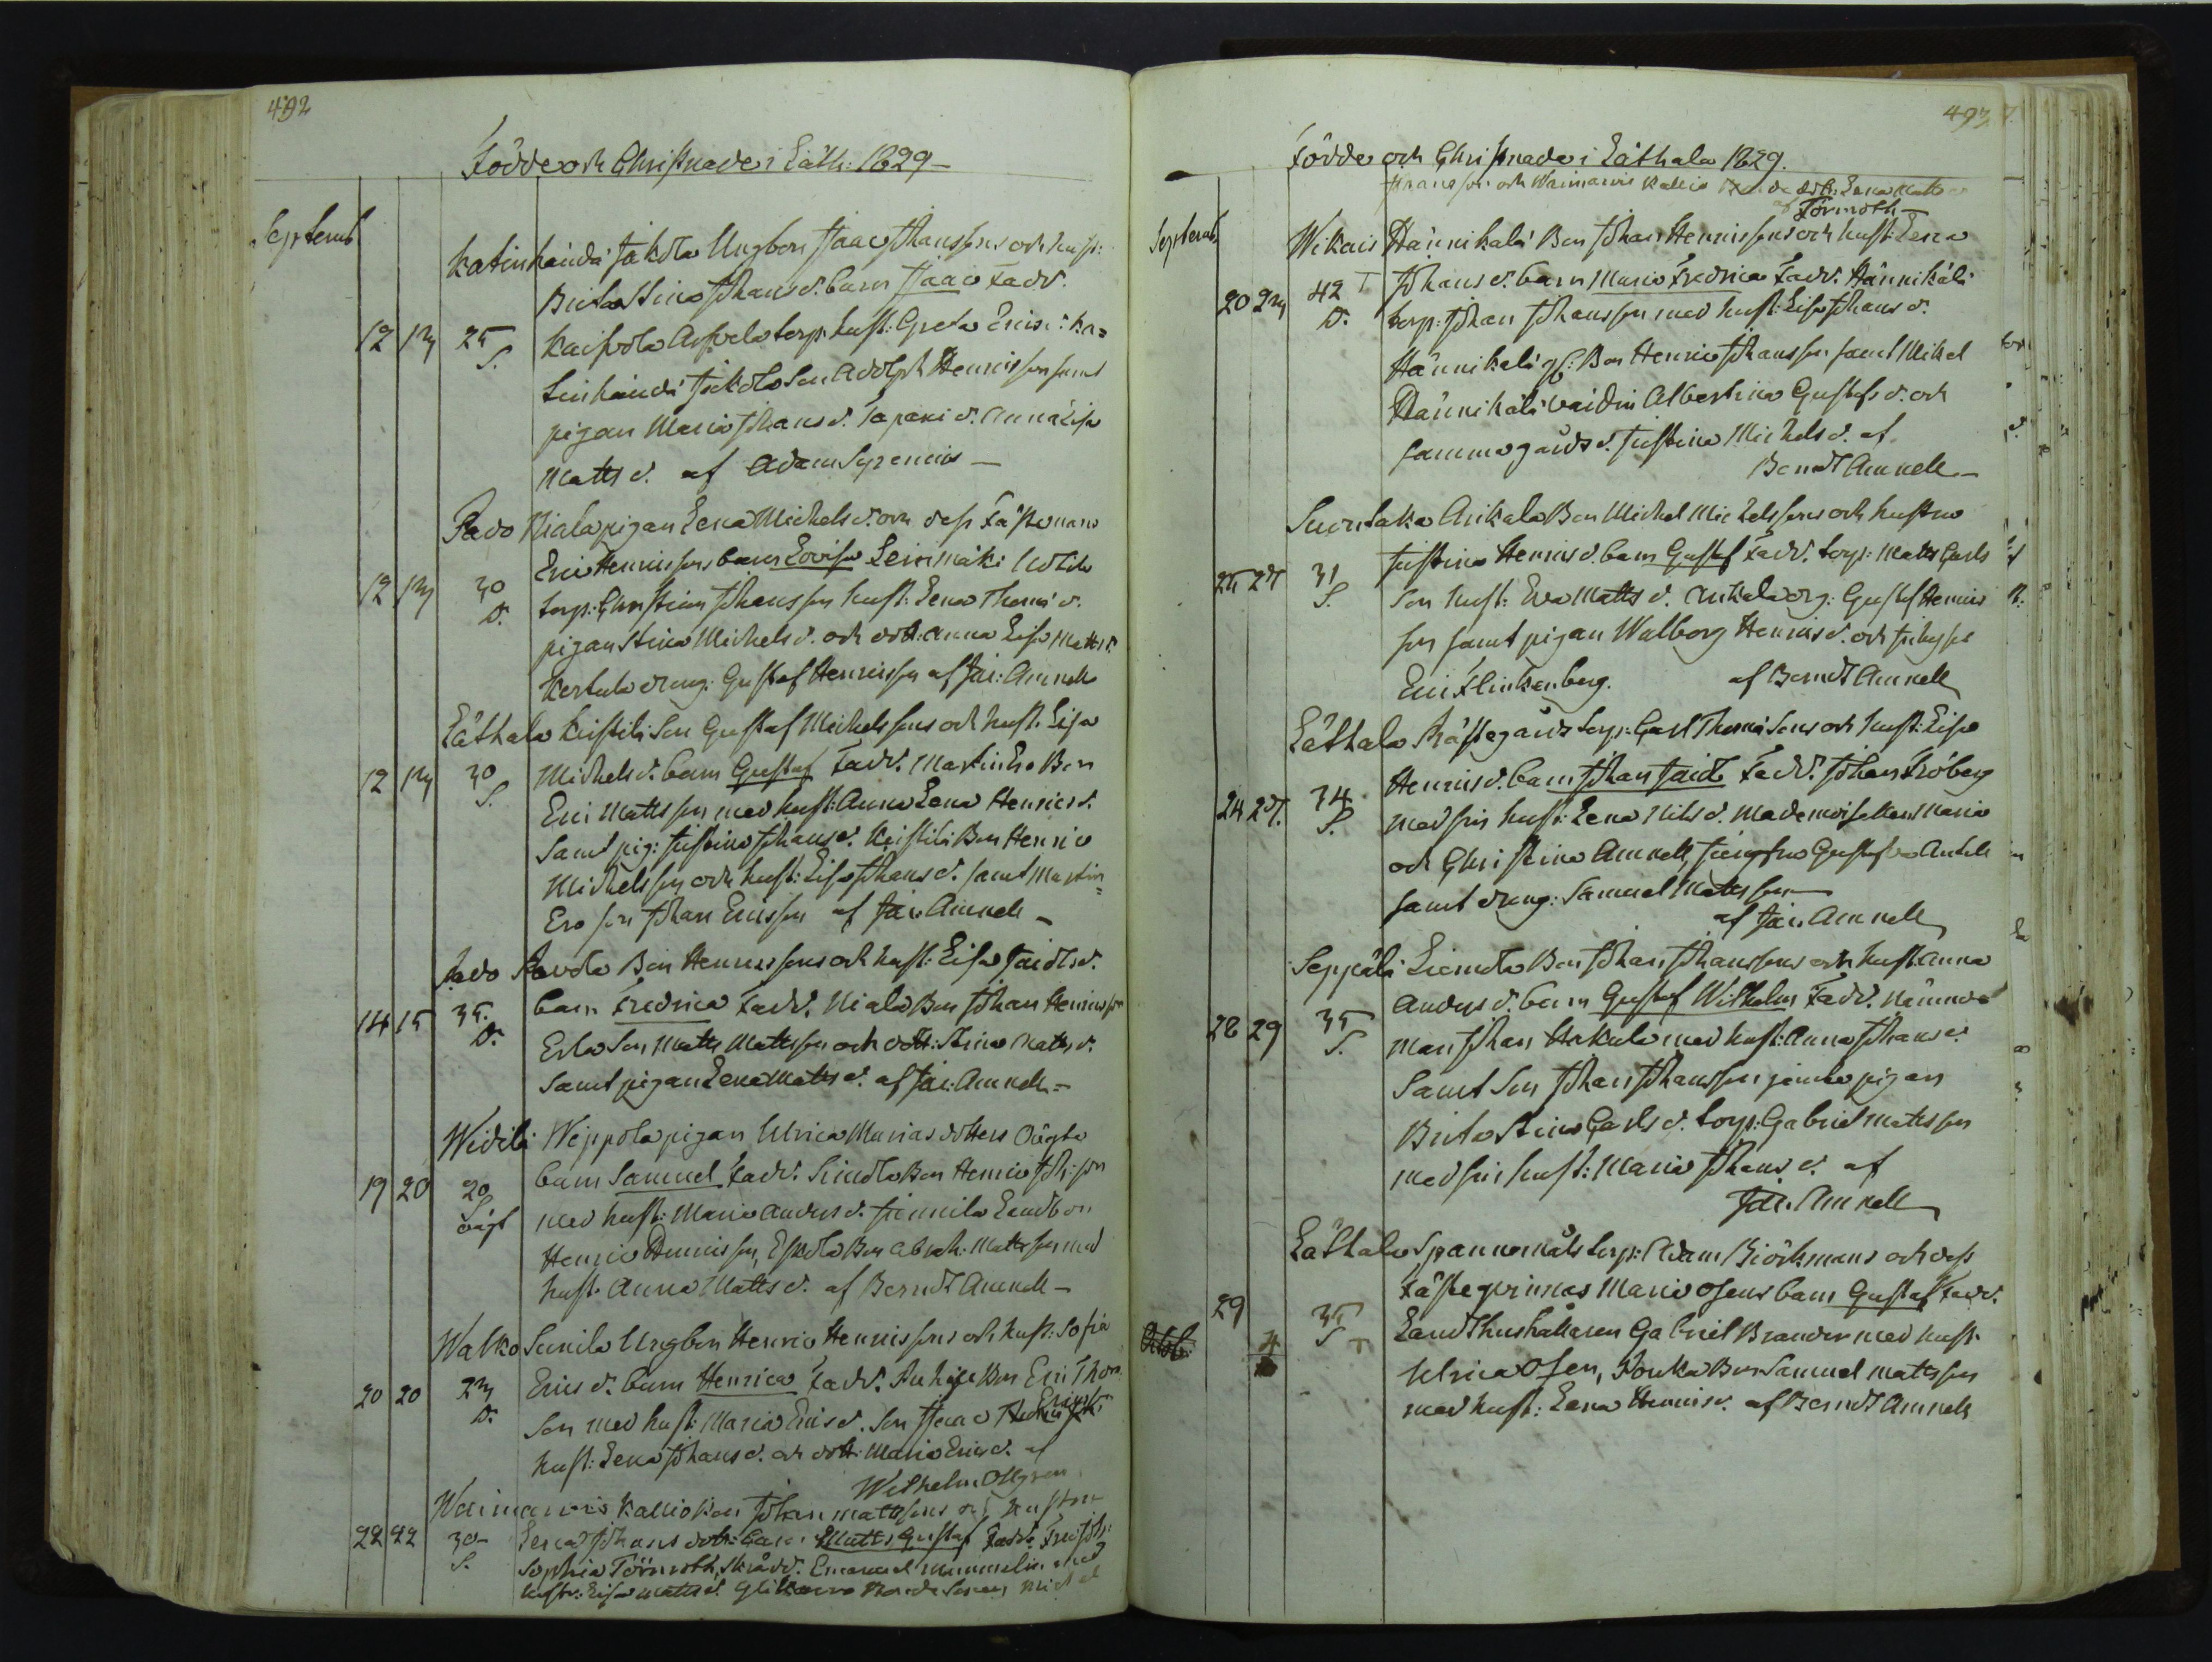 492
Födde och Christnade i Läth: 1829
Septemb
Katinhändä Jakola Ungbon Isaac Johanssons och hust:
Brita Stina Johansd. barn Isaac Fadd.
12 13 25 Kaipola Arpela torp. hust: Greta Ericsd: Ka=
S. tinhändä Jakola Son Adolph Henricsson samt
pigan Maria Johansd. Tapani d. Anna Lisa
Matts d. af Adam Syrenius
Pado Niala pigan Lena Michelsd. och dess Fästeman
Eric Henrics sons barn Lovisa
12 13 30 torp: Christian Johansson hust: Lena Thoms d.
D. pigan Stina Michelsd. och dott: Anna Lisa Mattsd.
Kertula dreng: Gustaf Henricsson af Jac: Amnell
Läthala Kistili Son Gustaf Michelssons och hust. Lisa
12 13 30 Michelsd. barn Gustaf Fadd. Martin Ero Bon
S. Eric Mattsson med hust: Anna Lena Henricsd.
Samt pig: Justina Johansd. Kistili Bon Henric
Michelsson och hust: Lisa Johansd. samt Martin=
Ero son Johan Ericsson af Jac. Amnell
Pado Bon Henricssons och hust: Lisa Jacobsd.
14 15 35. barn Fredrica Fadd. Niala Bon Johan Henricsson
D. Erla Son Matts Mattsson och dott: Stina Mattsd.
Samt pigan Lena Mattsd. af Jac: Amnell
Widilä Weppola pigan Ulrica Mariasdotters Oägta
19 20 20 barn Samuel Fadd. Simola Bon Henric Joh:son
S. med hust: Maria Andersd. Junnila Landbon
oägt Henric Henricsson, Eskola Bon Abrah: Mattsson med
hust. Anna Matts d. af Berndt Amnell
Walko Sunila Ungbon Henric Henricssons och hust: Sofia
20 20 23 Erics d. barn Henrica Fadd. Bon Eric Thom.
D. Son med hust: Maria Ericsd. Son Isaac Ericsson
hust: Lena Johansd. och dott: Maria Ericsd. af
Wilhelm Ollgren
Waimarois Kallio Bon Johan Mattssons och hustru
22 22 30 Lena Johansdott: barn Matts Gustaf Fadd.
S. Sophia Törnroth, Skrädd. Emanuel Mummelin med
hustr: Lisa Mattsd. Bonde Sonen Michel
493
Födde och Christnade i Läthala 1829.
Hansson och Waimarois Kallio Bonde dotr: Lena Matts
af Törnroth
Septemb
Wikais Hännikälä Bon Johan Henricssons och hust: Lena
20 23 42 Johansd. barn Maria Fredrica Fadd. Hännikälä
D. torp: Johan Johansson med hust: Lisa Johans d.
Hännikälä Bon Henric Johansson samt Mikel
Hännikälä Albertina Gustafs d. och
samma gårds d. Justina Michels d. af
Berndt Amnell
Suontaka Anikala Bon Michel Michelssons och hustru
Justina Henricsd. barn Gustaf Fadd. torp: Matts Carls
25 27 31 Son hust: Eva Matts d. Anikala dreng: Gustaf Henrics
S. son samt pigan Walborg Henricsd. och
Eric Flinkenberg. af Berndt Amnell
Läthala Prästegårds torp: Carl Thomæsons och hust: Lisa
Henricsd. barn Johan Jacob Fadd. Johan Fröberg
24 27. 34 med sin hust: Lena Nils d. Mademoisellen Maria
S. och Christina Amnell, Jungfru Gustafva Antell
samt dreng: Samuel Mattsson
af Jac. Amnell
Seppälä Liemola Bon Johan Johanssons och hust. Anna
Andersd. barn Gustaf Wilhelm Fadd. Nämnde
28 29 35 man Johan Hakula med hust: Anna Johans d.
S. Samt Son Johan Johansson jemte pigan
Brita Stina Carls d. torp: Gabriel Mattsson
med sin hust: Maria Johans d. af
Jac. Amnell
Läthala Spannomäki torp: Adam Biörkmans och dess
Fästeqvinnas Maria Osens barn Gustaf Fadd.
29 4 35 Landthushållaren Gabriel Brander med hust.
S Ulrica Osen, Pouka Bon Samuel Mattsson
med hust: Lena Henricsd. af Berndt Amnell